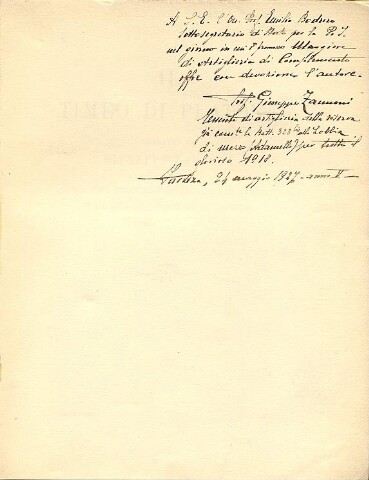 A S. E. l'On. Prof. Emilio Bodrero
Sottosegretario di Stato per la P. I.
nel giorno in cui è promosso Maggiore
di Artiglieria di Complemento
offre con devozione l'autore.
Prof. Giuseppe Zannoni
Tenente di artiglieria della riserva
già com.te la Batt. alla Lobbia
di mezzo (Adamello) per tutto il
glorioso 1918.
, 24 maggio 1927 - anno V -